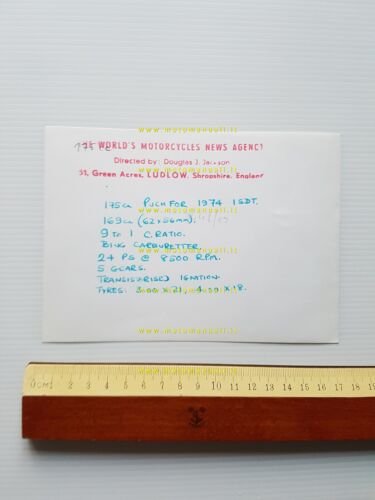 www.motomanuali.it
WORLD'S MOTORCYCLES NEWS AGENCY
Directed by: Douglas J. Jackson
31, Green Acres, LUDLOW, Shropshire, England
www.motomanuali.it
175cc PUCH FOR 1974 ISDT.
169cc (62x56mm).
9 to 1 C.RATIO.
BING CARBURETTER.
www.motomanuali.it
24 PS @ 8500 RPM.
5 GEARS.
TRANSISTORISED IGNATION.
TYRES: 3.00 x 21, 4.00 x 18.
www.motomanuali.it
0CM1 2 3 4 5 6 7 8 9 10 11 12 13 14 15 16 17 18 19